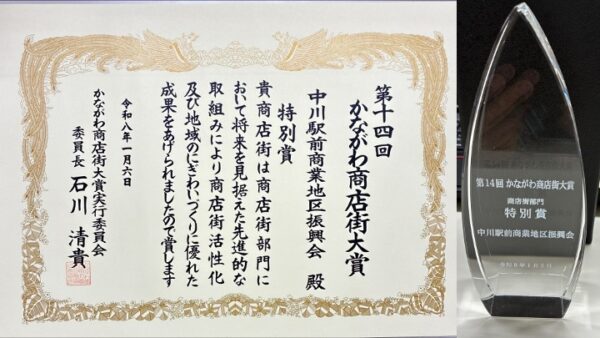 第十四回
かながわ商店街大賞
中川駅前商業地区振興会 殿
特別賞
貴商店街は商店街部門に
おいて将来を見据えた先進的な
取組みにより商店街活性化
及び地域のにぎわいづくりに優れた
成果をあげられましたので賞します
令和八年一月六日
かながわ商店街大賞実行委員会
委員長 石川 清貴
第14回 かながわ商店街大賞
商店街部門
特別賞
中川駅前商業地区振興会